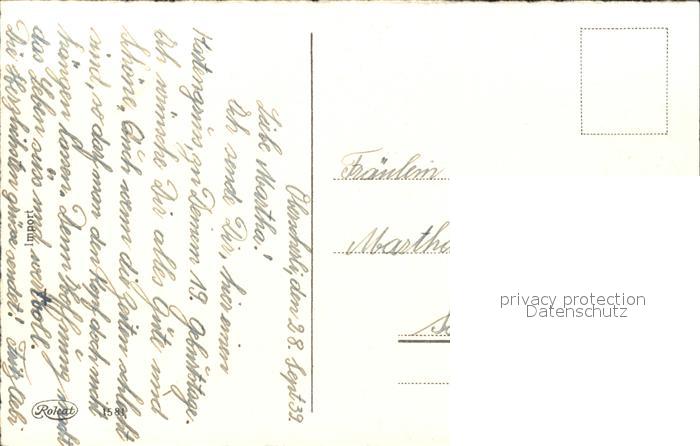 den 28. Sept. 39.
Liebe Martha!
Ich sende Dir, hier einen
Kartengruss, zu Deinem 19. Geburtstage.
Ich wünsche Dir alles Gute und
Schöne, Auch wenn die Zeiten schlecht
sind, so darf man den Kopf doch nicht
hängen lassen. Denn Hoffnung macht
das Leben süss und wertvoll.
Die herzlichsten Grüsse
Import
Rolcat 1581
Fräulein
Martha
privacy protection
Datenschutz